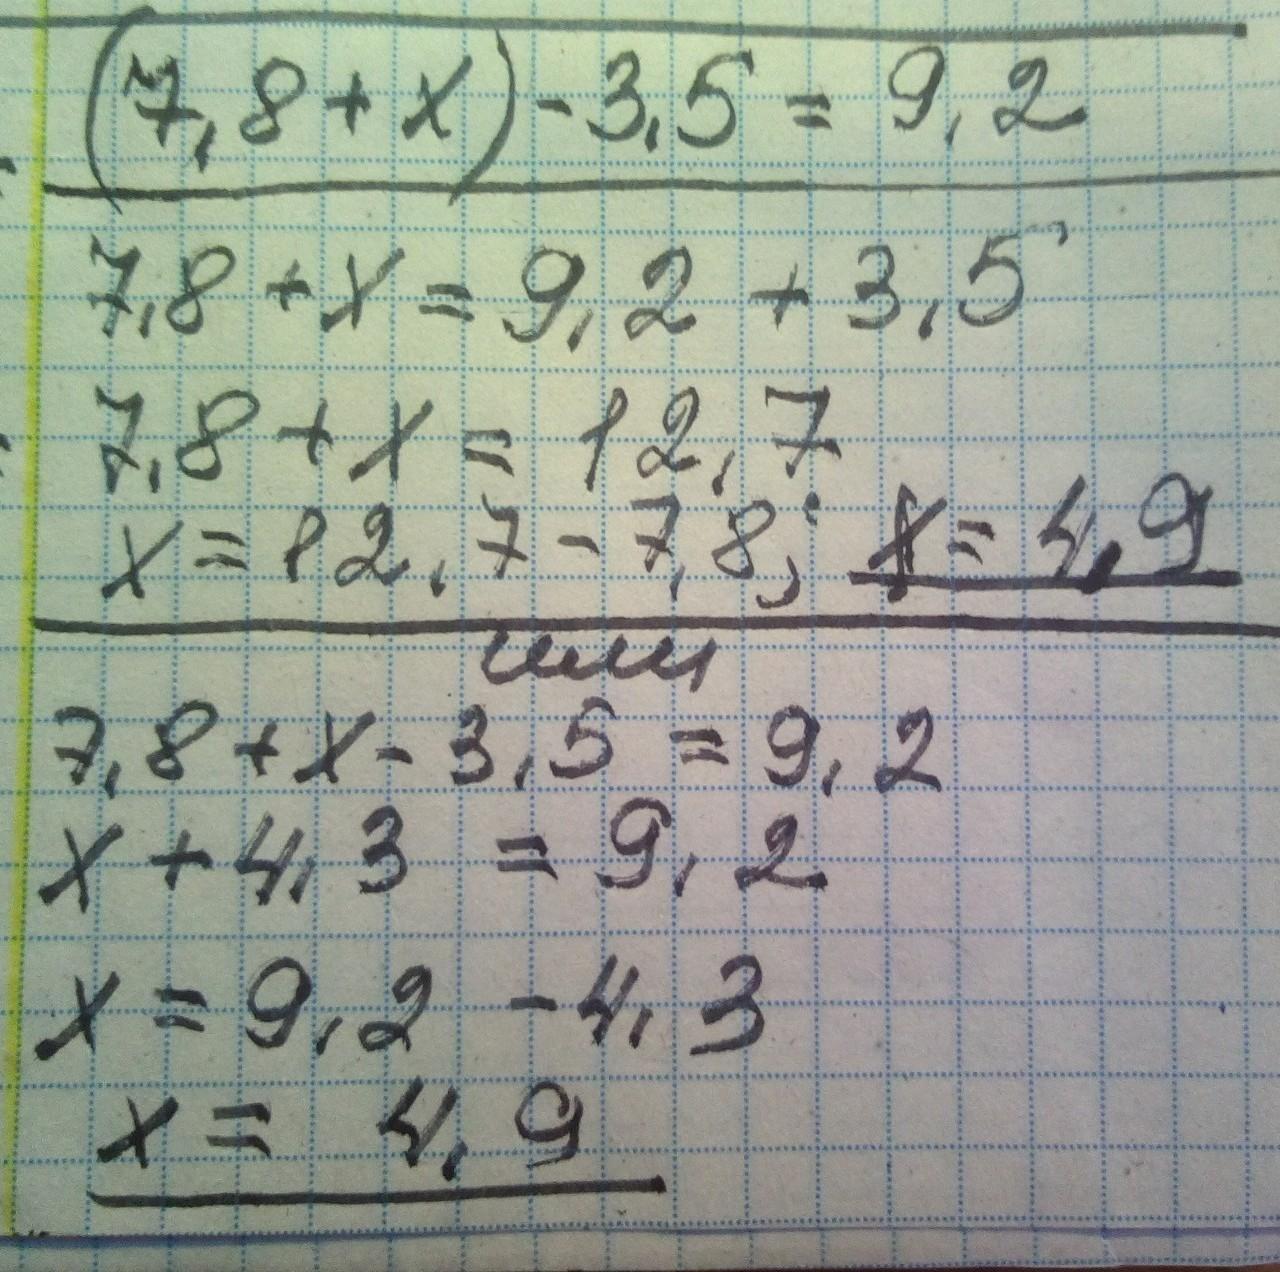 (7,8 + x) - 3,5 = 9,2
7,8 + x = 9,2 + 3,5
7,8 + x = 12,7
x = 12,7 - 7,8; x = 4,9
или
7,8 + x - 3,5 = 9,2
x + 4,3 = 9,2
x = 9,2 - 4,3
x = 4,9